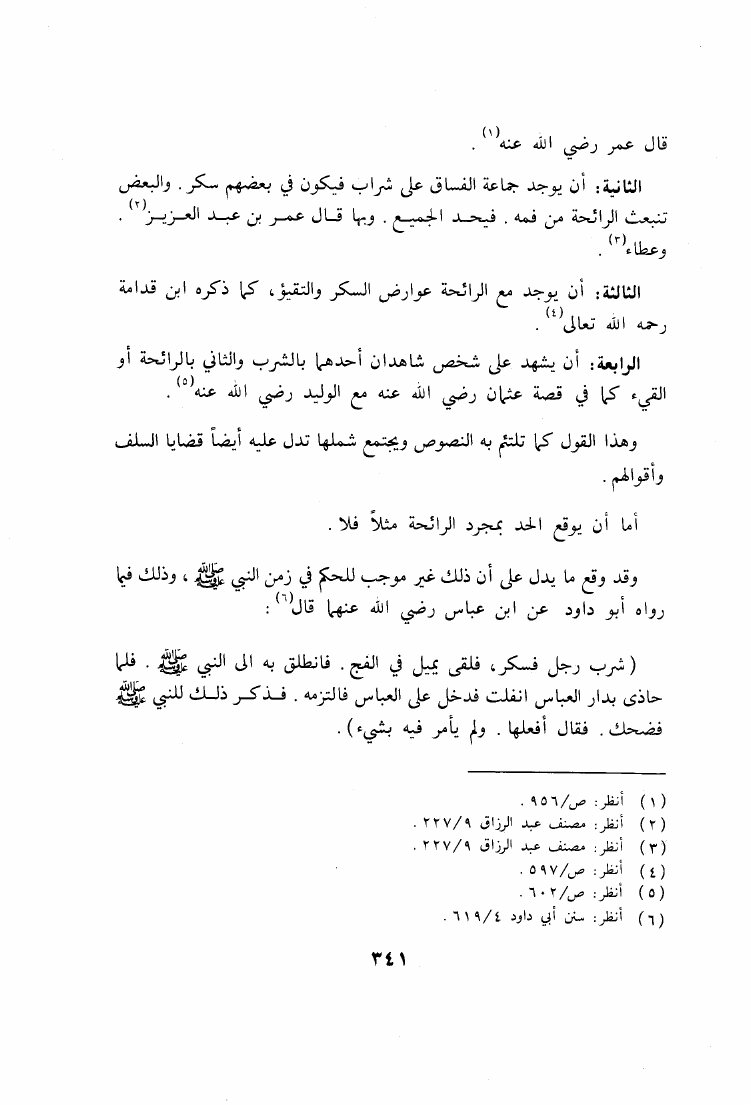 قال عمر رضي الله عنه(١) .
الثانية: أن يوجد جماعة الفساق على شراب فيكون في بعضهم سكر . والبعض
تنبعث الرائحة من فمه . فيحد الجميع . وبها قال عمر بن عبد العزيز(٢) .
وعطاء(٣) .
الثالثة: أن يوجد مع الرائحة عوارض السكر والتقيؤ، كما ذكره ابن قدامة
رحمه الله تعالى(٤) .
الرابعة: أن يشهد على شخص شاهدان أحدهما بالشرب والثاني بالرائحة أو
القيء كما في قصة عثمان رضي الله عنه مع الوليد رضي الله عنه(٥) .
وهذا القول كما تلتئم به النصوص ويجتمع شملها تدل عليه أيضاً قضايا السلف
وأقوالهم .
أما أن يوقع الحد بمجرد الرائحة مثلاً فلا .
وقد وقع ما يدل على أن ذلك غير موجب للحكم في زمن النبي ﷺ ، وذلك فيما
رواه أبو داود عن ابن عباس رضي الله عنهما قال(٦) :
(شرب رجل فسكر، فلقى يميل في الفج . فانطلق به الى النبي ﷺ . فلما
حاذى بدار العباس انفلت فدخل على العباس فالتزمه . فذكر ذلك للنبي ﷺ
فضحك . فقال أفعلها . ولم يأمر فيه بشيء) .
(١) أنظر: ص/٩٥٦ .
(٢) أنظر: مصنف عبد الرزاق ٢٢٧/٩ .
(٣) أنظر: مصنف عبد الرزاق ٢٢٧/٩ .
(٤) أنظر: ص/٥٩٧ .
(٥) أنظر: ص/٦٠٢ .
(٦) أنظر: سنن أبي داود ٦١٩/٤ .
٣٤١